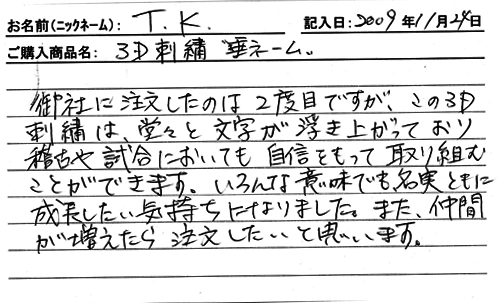 お名前(ニックネーム): T.K. 記入日: 2009年11月24日
ご購入商品名: 3D刺繍 垂ネーム。
御社に注文したのは2度目ですが、この3D
刺繍は、堂々と文字が浮き上がっており
稽古や試合においても自信をもって取り組む
ことができます。いろんな意味でも名実ともに
成長したい気持ちになりました。また、仲間
が増えたら注文したいと思います。